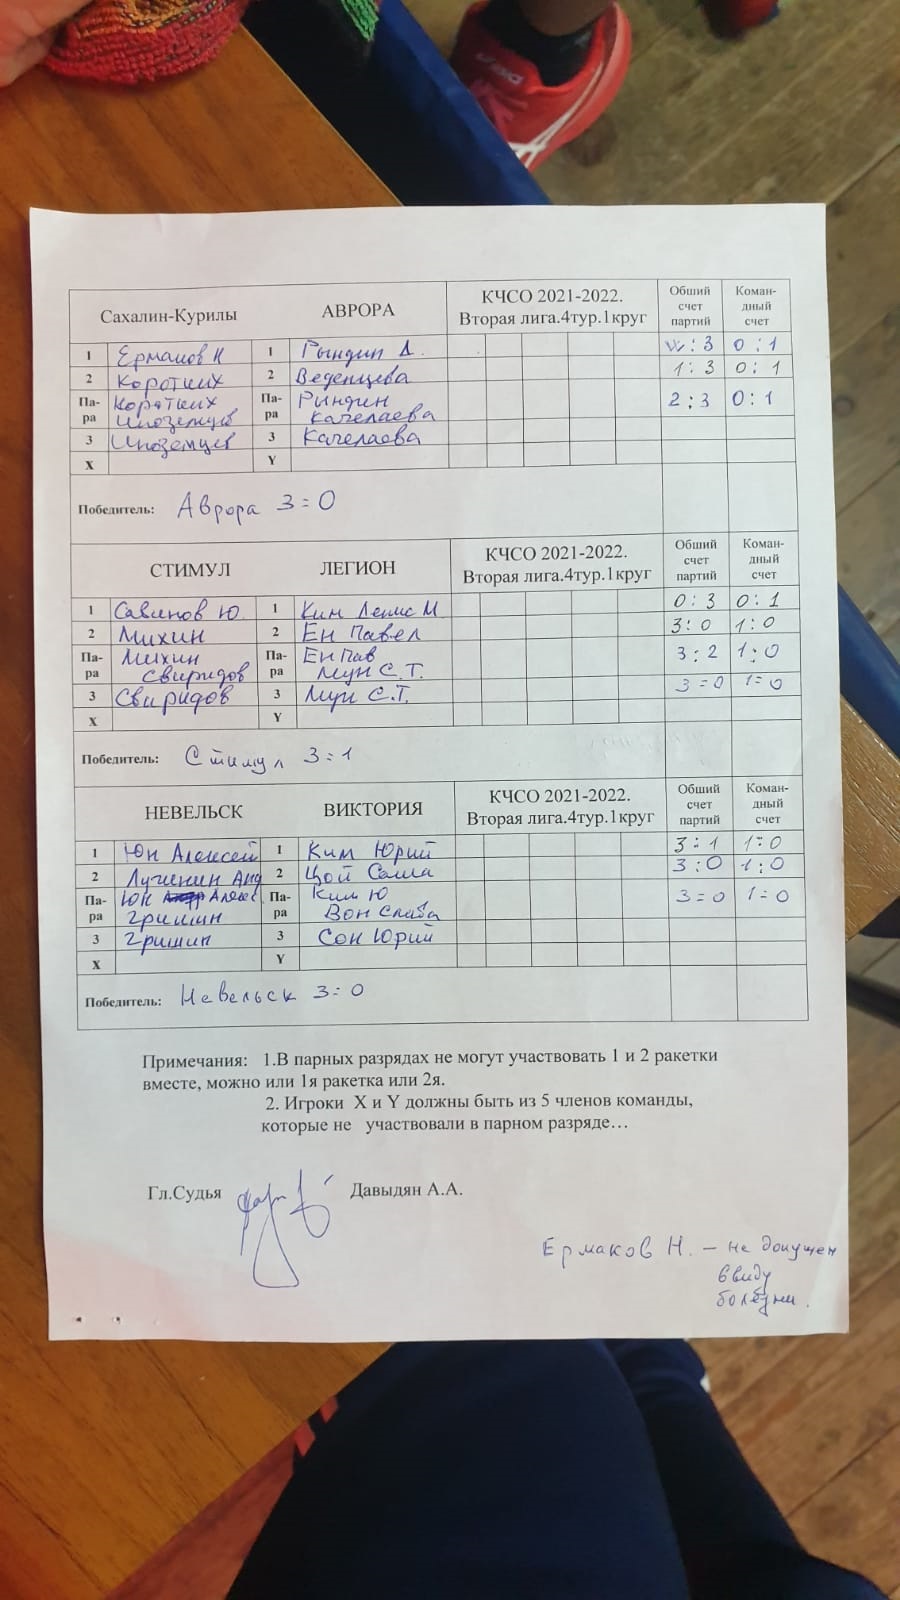 Сахалин-Курилы АВРОРА КЧСО 2021-2022. Вторая лига.4тур.1круг Общий счет партий Коман-дный счет
1 Ермаков Н 1 Рындин Д. w : 3 0 : 1
2 Коротких 2 Веденцева 1 : 3 0 : 1
Па-ра Коротких Иноземцев Па-ра Рындин Качелаева 2 : 3 0 : 1
3 Иноземцев 3 Качелаева
X Y
Победитель: Аврора 3 = 0
СТИМУЛ ЛЕГИОН КЧСО 2021-2022. Вторая лига.4тур.1круг Общий счет партий Коман-дный счет
1 Савинов Ю. 1 Ким Денис М 0 : 3 0 : 1
2 Михин 2 Ен Павел 3 : 0 1 : 0
Па-ра Михин Свиридов Па-ра Ен Пав Мун С.Т. 3 : 2 1 : 0
3 Свиридов 3 Мун С.Т. 3 = 0 1 = 0
X Y
Победитель: Стимул 3 = 1
НЕВЕЛЬСК ВИКТОРИЯ КЧСО 2021-2022. Вторая лига.4тур.1круг Общий счет партий Коман-дный счет
1 Юн Алексей 1 Ким Юрий 3 = 1 1 = 0
2 Анд 2 Цой Саша 3 : 0 1 : 0
Па-ра Юн Алексе Гришин Па-ра Ким Ю Вон Слава 3 = 0 1 = 0
3 Гришин 3 Сон Юрий
X Y
Победитель: Невельск 3 = 0
Примечания: 1.В парных разрядах не могут участвовать 1 и 2 ракетки
вместе, можно или 1я ракетка или 2я.
2. Игроки X и Y должны быть из 5 членов команды,
которые не участвовали в парном разряде…
Гл.Судья Давыдян А.А.
Ермаков Н. – не допущен
ввиду
болезни.